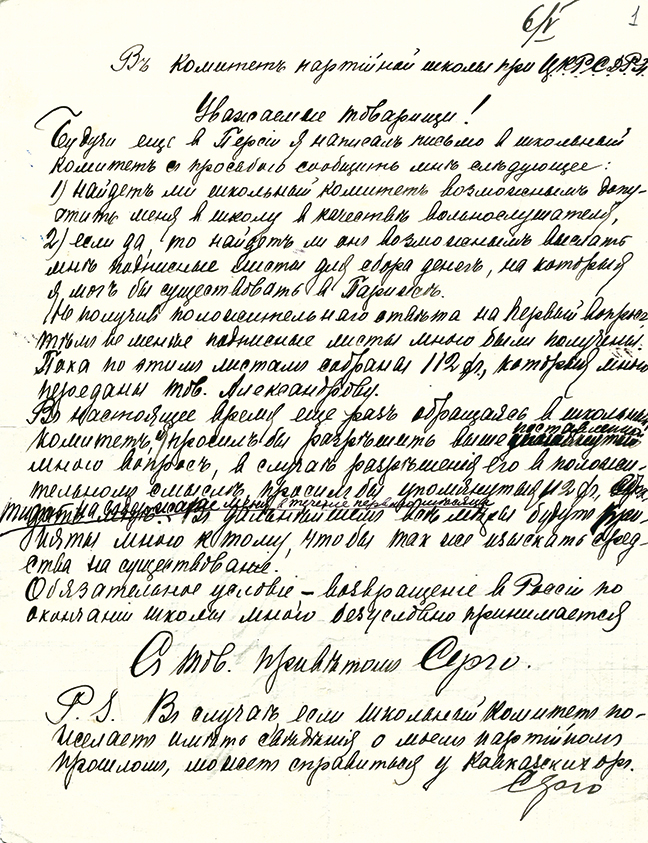 6/V 1
Въ комитетъ партійной школы при Ц.К.Р.С.Д.Р.П.
Уважаемые товарищи!
Будучи еще в Персіи я написалъ письмо в школьный
комитетъ с просьбою сообщить мнѣ слѣдующее:
1) найдетъ ли школьный комитетъ возможнымъ допу-
стить меня в школу в качествѣ вольнослушателя,
2) если да, то найдетъ ли онъ возможнымъ выслать
мнѣ подписные листы для сбора денег, на которыя
я могъ бы существовать в Парижѣ.
Не получив положительнаго отвѣта на первый вопросъ
тѣмъ не менѣе подписные листы мною были получены.
Пока по этимъ листамъ собраны 112 ф., которыя мною
переданы тов. Александрову.
Въ настоящее время еще разъ обращаясь в школьный
комитетъ, просилъ бы разрѣшить выше поставленной
мною вопросъ, в случаѣ разрѣшенія его в положи-
тельномъ смыслѣ, просилъ бы упомянутыя 112 ф.,
меня в теченіе перв
В дальнѣйшемъ всѣ мѣры будутъ при-
няты мною к тому, чтобы так же изыскать сред-
ства на существованіе.
Обязательное условіе – возвращеніе в Россію по
окончаніи школы мною безусловно принимается
С тов. привѣтомъ Серго.
P.S. Въ случаѣ если школьный комитетъ по-
желаетъ имѣть свѣдѣнія о моемъ партійномъ
прошломъ, можетъ справиться у Кавказских орг.
Серго